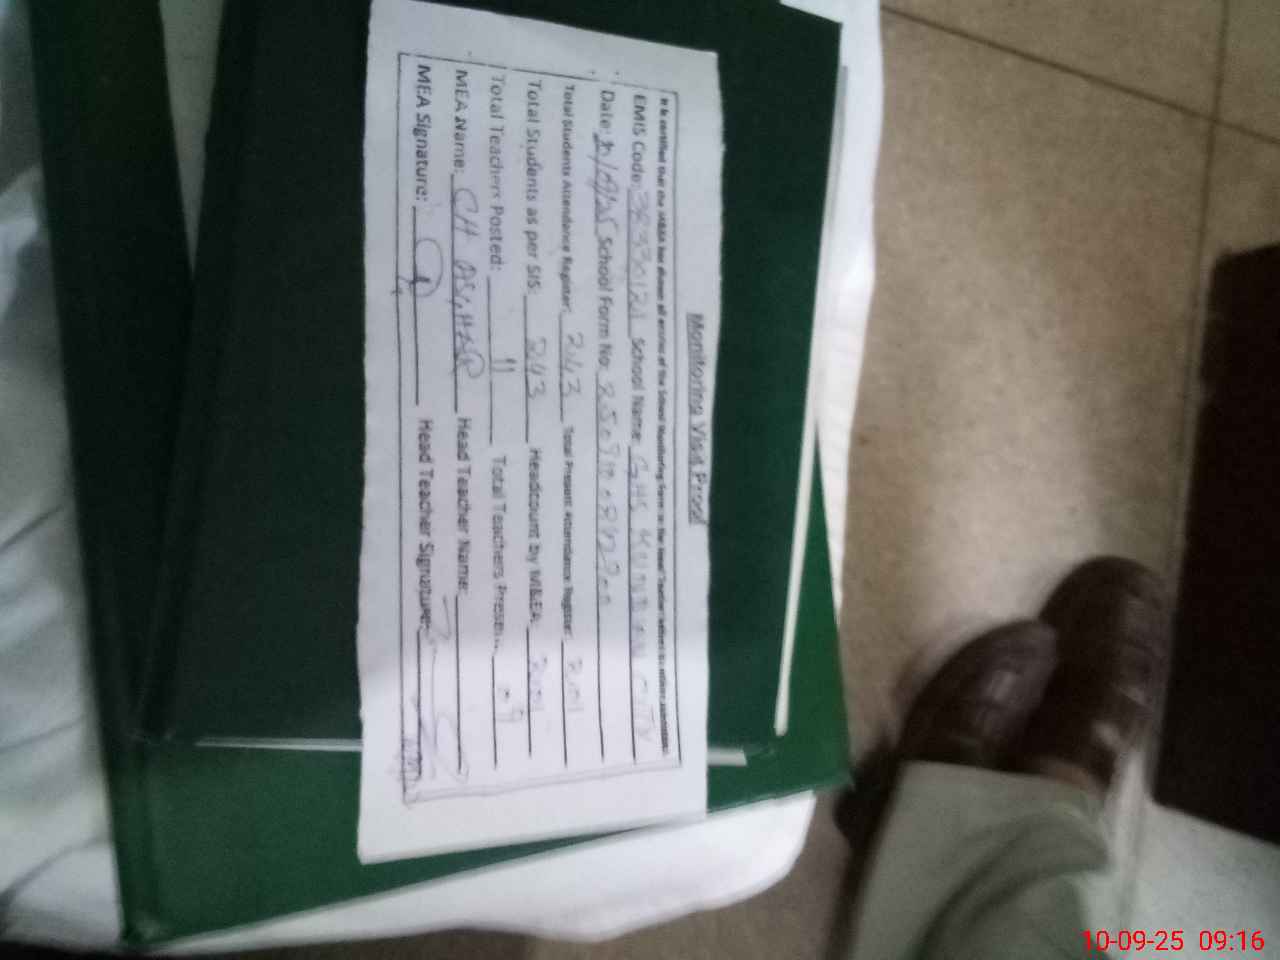 Monitoring Visit Proof
It is certified that the M&EA has shown all entries of the School Monitoring Form to the Head Teacher
EMIS Code: School Name: GHS KUNDIAN CITY
Date: School Form No:
Total Students Attendance Register: 243 Total Present Attendance Register: 201
Total Students as per SIS: 243 Headcount by M&EA: 201
Total Teachers Posted: 11 Total Teachers Present: 09
MEA Name: CH ASGHAR Head Teacher Name:
MEA Signature: Head Teacher Signature:
10-09-25 09:16